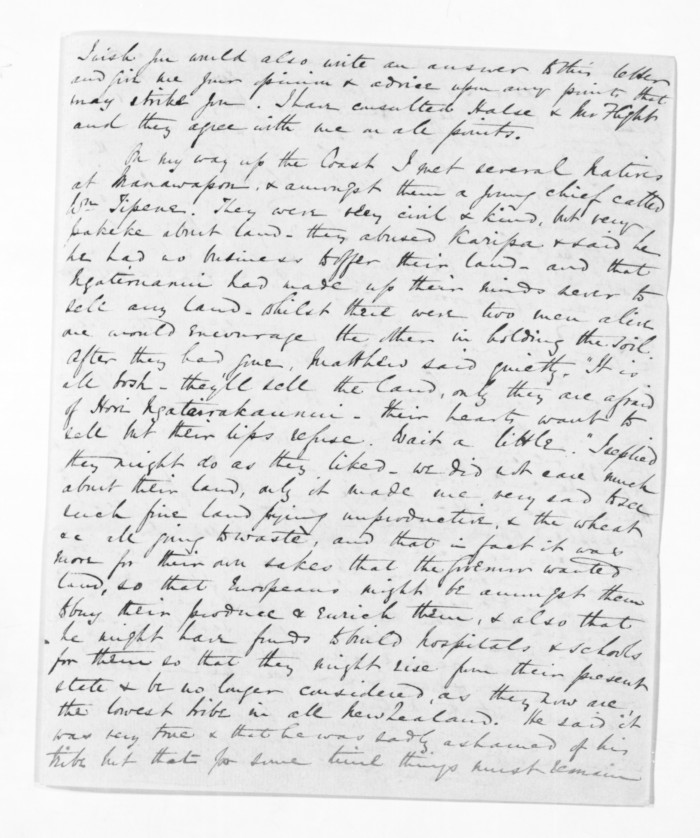 I wish you would also write an answer to this letter
and give me your opinion & advice upon any points that
may strike you. I have consulted Halse & Mr Flight
and they agree with me on all points.
On my way up the Coast I met several Natives
at Manawapou, & amongst them a young chief called
Wm Tipene. They were very civil & kind, but very
pakeke about land - they abused Karipa & said he
he had no business to offer their land - and that
Ngatiruanui had made up their minds never to
sell any land - whilst there were two men alive
one would encourage the other in holding the soil.
After they had gone, Matthew said quietly, "It is
all bosh - they'll sell the land, only they are afraid
of Hori - their hearts want to
sell but their lips refuse. Wait a little." I replied
they might do as they liked - we did not care much
about their land, only it made me very sad to see
such fine land lying unproductive, & the wheat
&c all going to waste, and that in fact it was
more for their own sakes that the Governor wanted
land, so that Europeans might be amongst them
to buy their produce & enrich them, & also that
he might have funds to build hospitals & schools
for them so that they might rise from their present
state & be no longer considered, as they now are,
the lowest tribe in all New Zealand. He said it
was very true & that he was sadly ashamed of his
tribe but that for some time things must remain